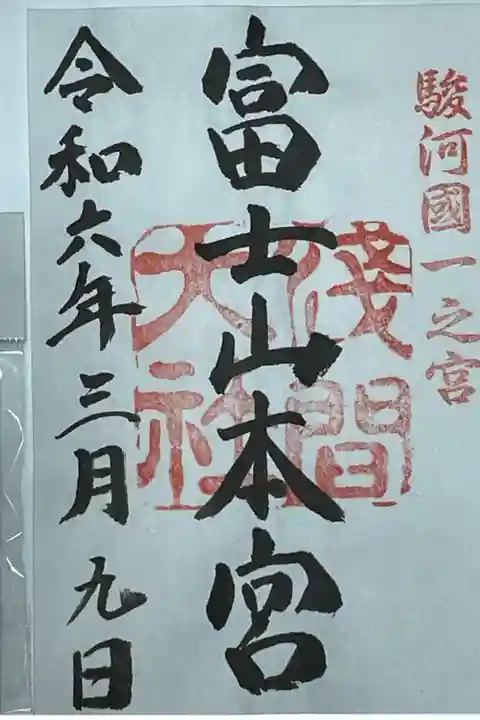 駿河國一之宮
富士山本宮
淺間
大社
令和六年三月九日